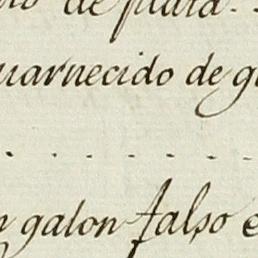 de plata.
uarnecido de g
n galon falso e